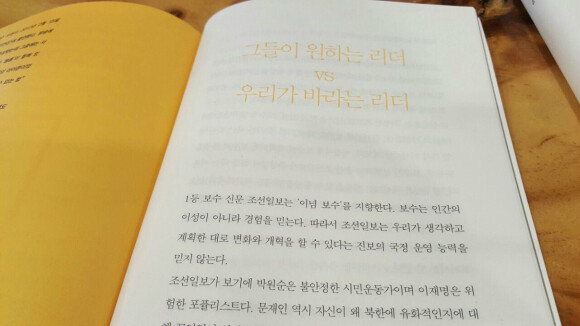 그들이 원하는 리더
vs
우리가 바라는 리더
1등 보수 신문 조선일보는 '이념 보수'를 지향한다. 보수는 인간의
이성이 아니라 경험을 믿는다. 따라서 조선일보는 우리가 생각하고
계획한 대로 변화와 개혁을 할 수 있다는 진보의 국정 운영 능력을
믿지 않는다.
조선일보가 보기에 박원순은 불안정한 시민운동가이며 이재명은 위
험한 포퓰리스트다. 문재인 역시 자신이 왜 북한에 유화적인지에 대